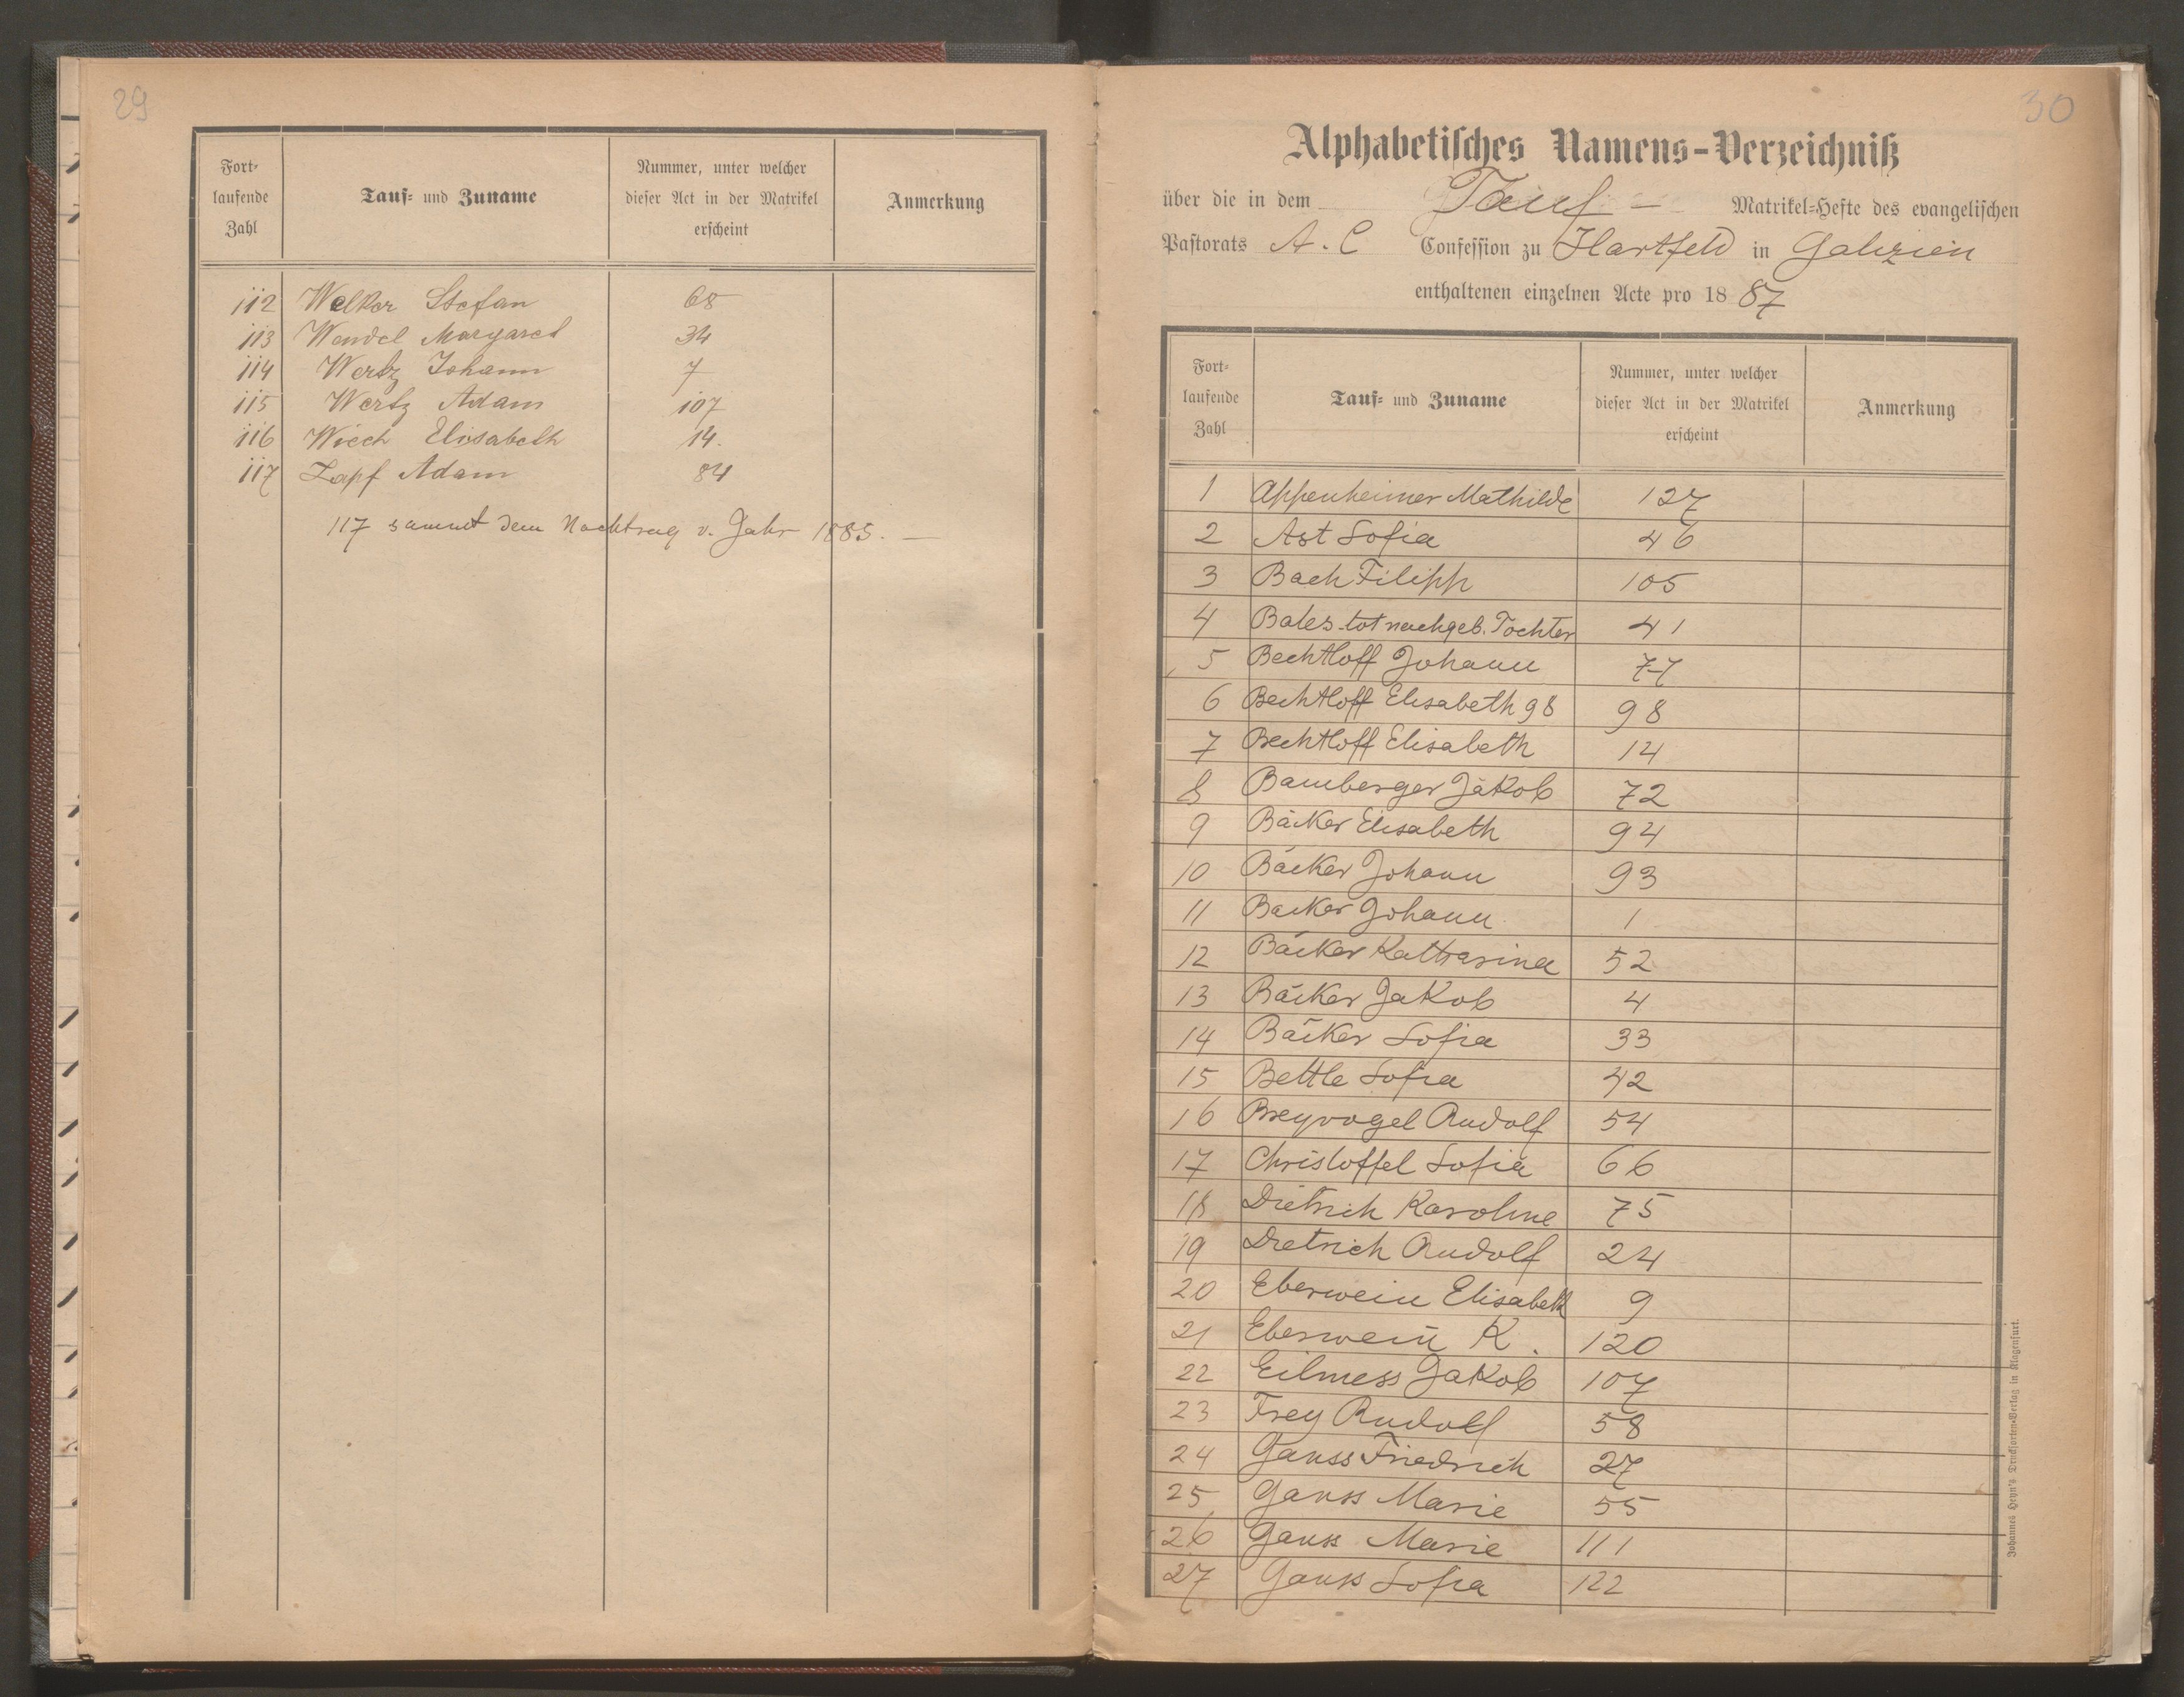 29
Fort-
laufende
Zahl
Tauf- und Zuname
Nummer, unter welcher
dieser Act in der Matrikel
erscheint
Anmerkung
112 Welker Stefan 68
113 Wendel Margaret 34
114 Wertz Johann 7
115 Wertz Adam 107
116 Wiech Elisabeth 14.
117 Zapf Adam 84
117 sammt dem Nachtrag v. Jahr 1885. —
30
Alphabetisches Namens-Verzeichniß
über die in dem Tauf - Matrikel-Hefte des evangelischen
Pastorats A. C Confession zu Hartfeld in Galizien
enthaltenen einzelnen Acte pro 1887
Fort-
laufende
Zahl
Tauf- und Zuname
Nummer, unter welcher
dieser Act in der Matrikel
erscheint
Anmerkung
1 Appenheimer Mathilde 127
2 Ast Sofia 46
3 Bach Filipp 105
4 Bales tot nachgeb. Tochter 41
5 Bechtloff Johann 77
6 Bechtloff Elisabeth 98 98
7 Bechtloff Elisabeth 14
8 Bamberger Jakob 72
9 Bäcker Elisabeth 94
10 Bäcker Johann 93
11 Bäcker Johann 1
12 Bäcker Katharina 52
13 Bäcker Jakob 4
14 Bäcker Sofia 33
15 Bettle Sofia 42
16 Breyvogel Rudolf 54
17 Christoffel Sofia 66
18 Dietrich Karoline 75
19 Dietrich Rudolf 24
20 Eberwein Elisabeth 9
21 Eberwein K. 120
22 Eilmess Jakob 107
23 Frey Rudolf 58
24 Gauss Friedrich 27
25 Gauss Marie 55
26 Gauss Marie 111
27 Gauss Sofia 122
Johannes Heyn's Drucksorten-Verlag in Klagenfurt.